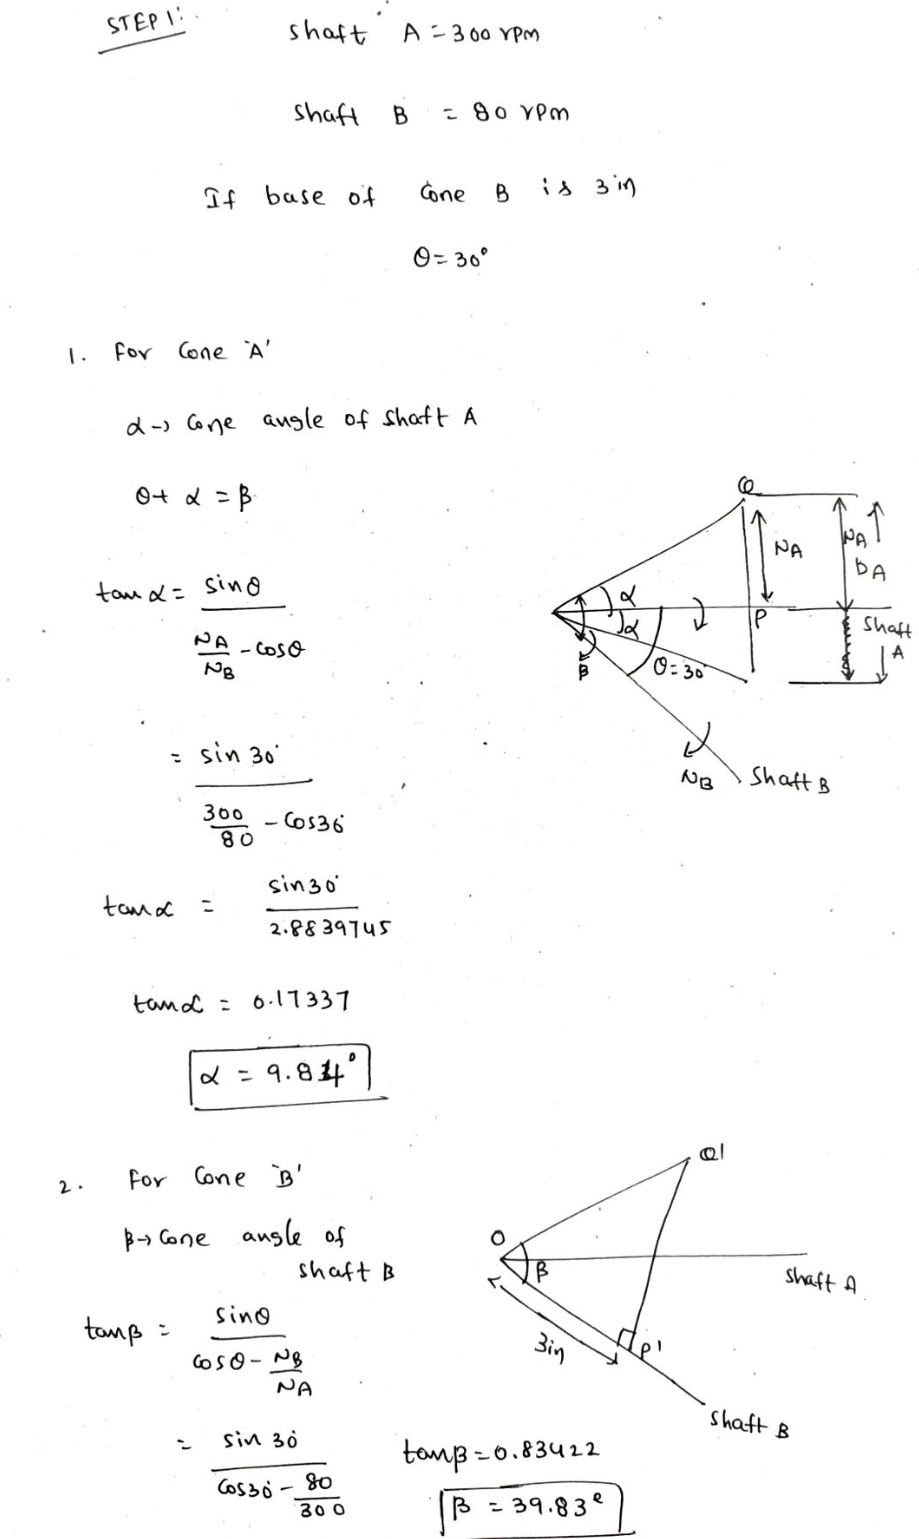 STEP 1:
Shaft A = 300 rpm
Shaft B = 80 rpm
If base of Cone B is 3 in
θ = 30°
1. For Cone 'A'
α → Cone angle of Shaft A
θ + α = β
tan α = sinθ / (NA/NB - cosθ)
= sin 30° / (300/80 - cos30°)
tan α = sin30° / 2.8839745
tan α = 0.17337
α = 9.84°
Q
NA
NA
DA
α
α
P
Shaft A
β
θ = 30
NB
Shaft B
2. For Cone 'B'
β → Cone angle of
Shaft B
tan β = sinθ / (cosθ - NB/NA)
= sin 30° / (cos30° - 80/300)
tan β = 0.83422
β = 39.83°
Q1
O
β
Shaft A
3in
P1
Shaft B